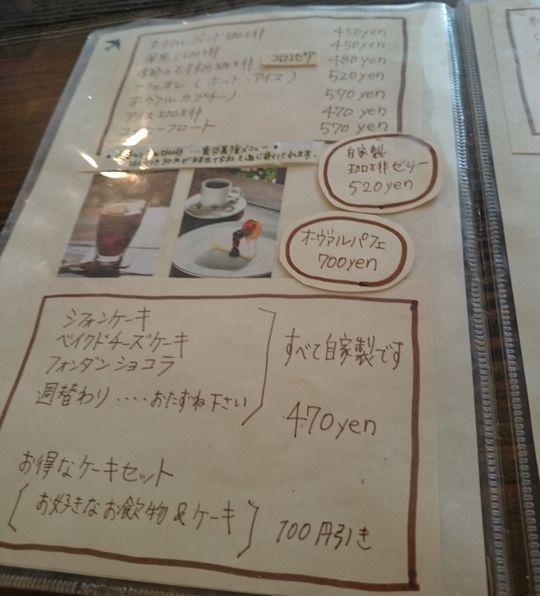 オーヴァルブレンド珈琲 450yen
深煎り珈琲 450yen
コロンビア 480yen
カフェオレ (ホット・アイス) 520yen
オーヴァルカプチーノ 590yen
アイス珈琲 470yen
コーヒーフロート 570yen
自家製
珈琲ゼリー
520yen
オーヴァルパフェ
700yen
シフォンケーキ
ベイクドチーズケーキ
フォンダンショコラ
週替わり ‥‥おたずね下さい
すべて自家製です
470yen
お得なケーキセット
[お好きなお飲物&ケーキ] 100円引き